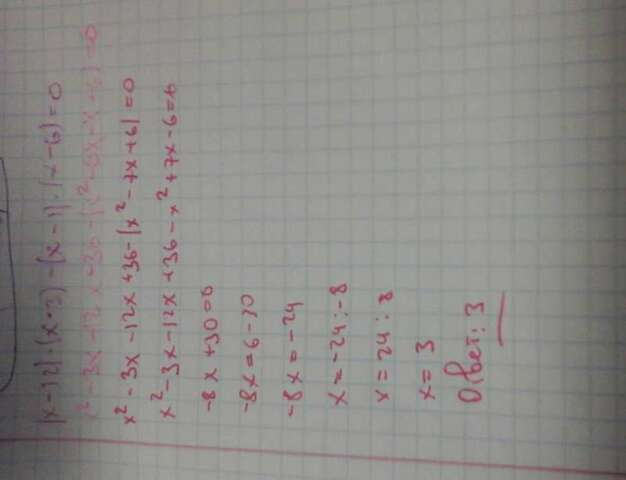 (x-12)·(x-3)-(x-1)·(x-6)=0
x²-3x-12x+36-(x²-6x-x+6)=0
x²-3x-12x+36-(x²-7x+6)=0
x²-3x-12x+36-x²+7x-6=0
-8x+30=6
-8x=6-30
-8x=-24
x=-24:-8
x=24:8
x=3
Ответ: 3